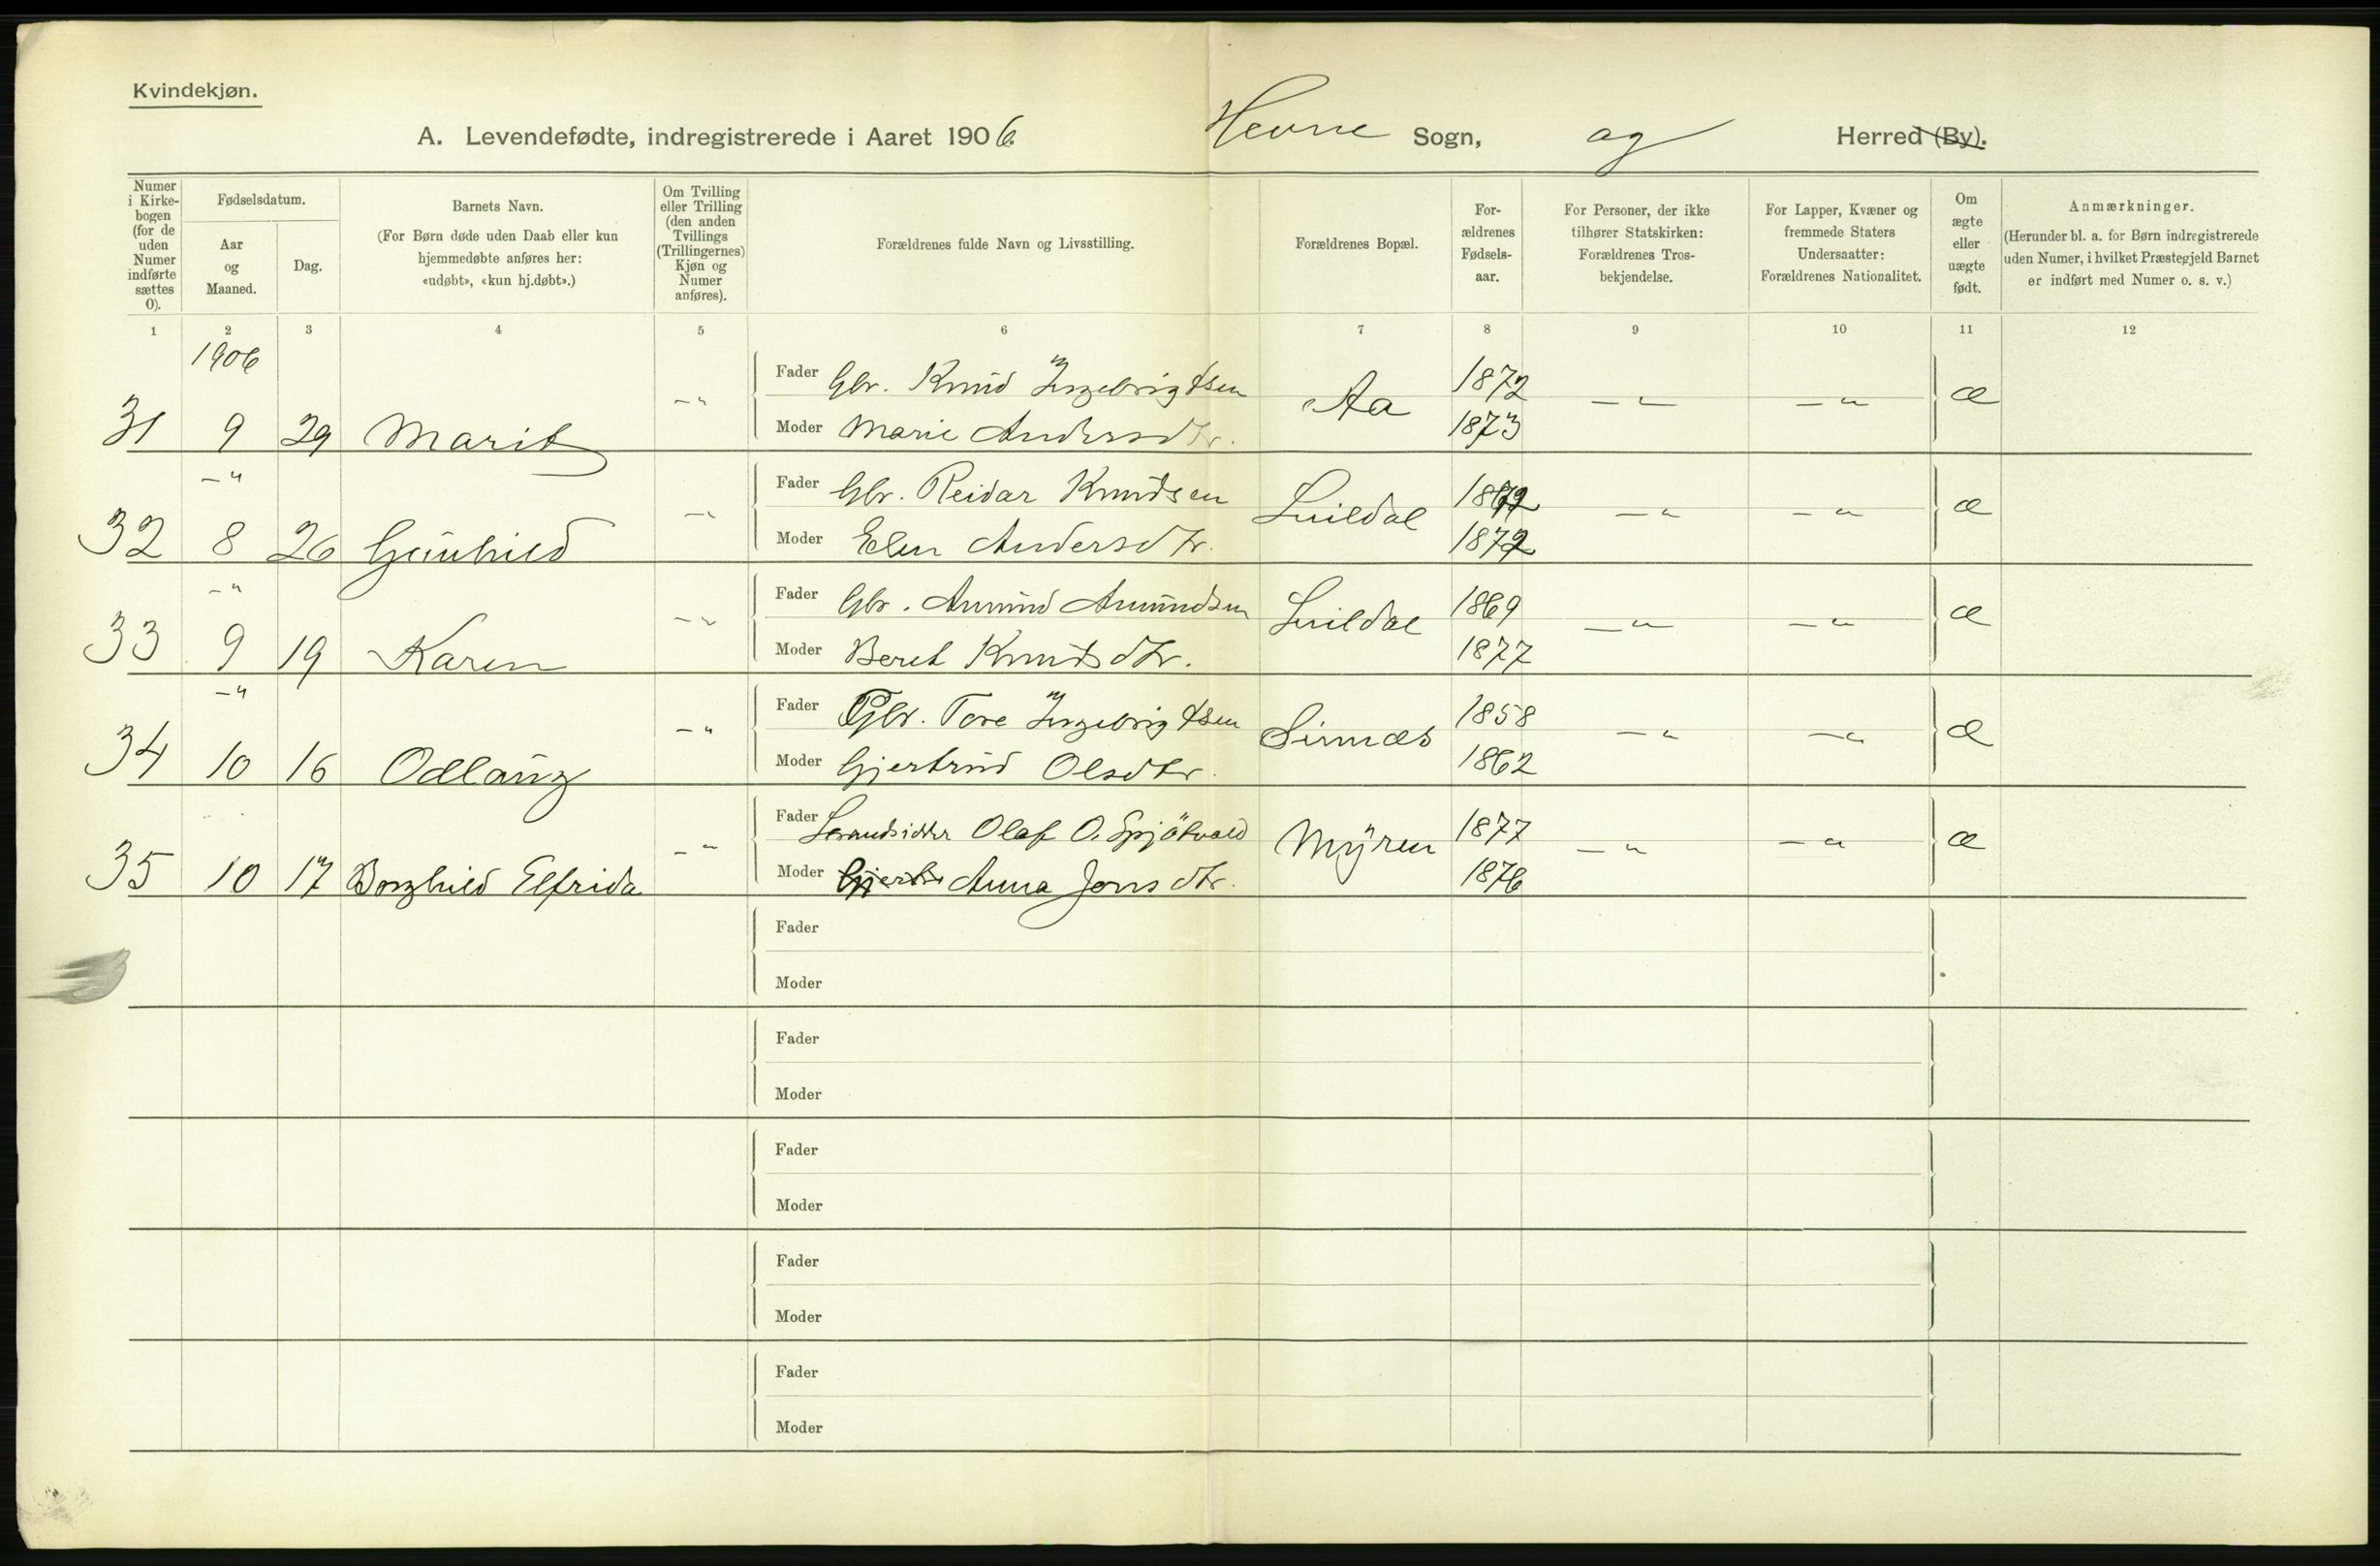 Kvindekjøn.
A. Levendefødte, indregistrerede i Aaret 1906. Hevne Sogn, og Herred (By).
Numer i Kirkebogen (for de uden Numer indførte sættes 0).
Fødselsdatum.
Aar og Maaned.
Dag.
Barnets Navn.
(For Børn døde uden Daab eller kun hjemmedøbte anføres her: «udøbt», «kun hj.døbt».)
Om Tvilling eller Trilling (den anden Tvillings (Trillingernes) Kjøn og Numer anføres).
Forældrenes fulde Navn og Livsstilling.
Forældrenes Bopæl.
For-ældrenes Fødsels-aar.
For Personer, der ikke tilhører Statskirken: Forældrenes Tros-bekjendelse.
For Lapper, Kvæner og fremmede Staters Undersaatter: Forældrenes Nationalitet.
Om ægte eller uægte født.
Anmærkninger.
(Herunder bl. a. for Børn indregistrerede uden Numer, i hvilket Præstegjeld Barnet er indført med Numer o. s. v.)
1 2 3 4 5 6 7 8 9 10 11 12
1906
Fader Gbr. Knud Ingebrigtsen Aa 1872 æ
31 9 29 Marit -"- Moder Marie Andersdtr. 1873
-"
Fader Gbr. Reidar Knudsen 1872 æ
32 8 26 Gunhild -"- Moder Elen Andersdtr. 1872
-"
Fader Gbr. Amund Amundsen 1869 æ
33 9 19 Karen -"- Moder Beret Knudsdtr. 1877
-"
Fader Gbr. Tore Ingebrigtsen Sinnæs 1858 æ
34 10 16 Odlaug -"- Moder Gjertrud Olsdtr. 1862
Fader Strandsidder Olaf O. Spjøtvold Myren 1877 æ
35 10 17 Borghild Elfrida -"- Moder Anna Jonsdtr. 1876
Fader
Moder
Fader
Moder
Fader
Moder
Fader
Moder
Fader
Moder